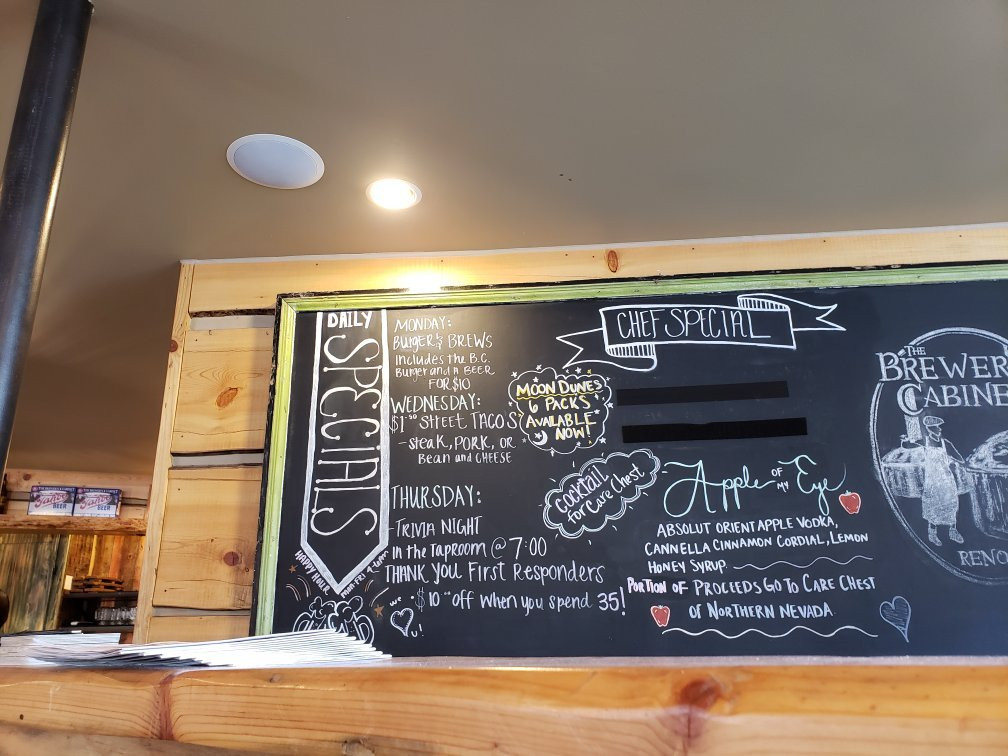 DAILY
SPECIALS
HAPPY HOUR
MON-FRI 4-6pm
MONDAY:
BURGER & BREWS
includes the B.C.
Burger and A BEER
FOR $10
WEDNESDAY:
$1.50 STREET TACOS
-steak, PORK, OR
Bean and CHEESE
THURSDAY:
-TRIVIA NIGHT
in the TAPROOM @ 7:00
THANK YOU First Responders
we
u!
$10 off when you spend 35!
CHEF SPECIAL
MOON DUNES
6 PACKS
AVAILABLE
NOW!
Cocktail
for Care Chest
Apple OF MY Eye
ABSOLUT ORIENT APPLE VODKA,
CANNELLA CINNAMON CORDIAL, LEMON
HONEY SYRUP
PORTION OF PROCEEDS GO TO CARE CHEST
OF NORTHERN NEVADA
THE
BREWER
CABINE
RENO
BEER
BEER